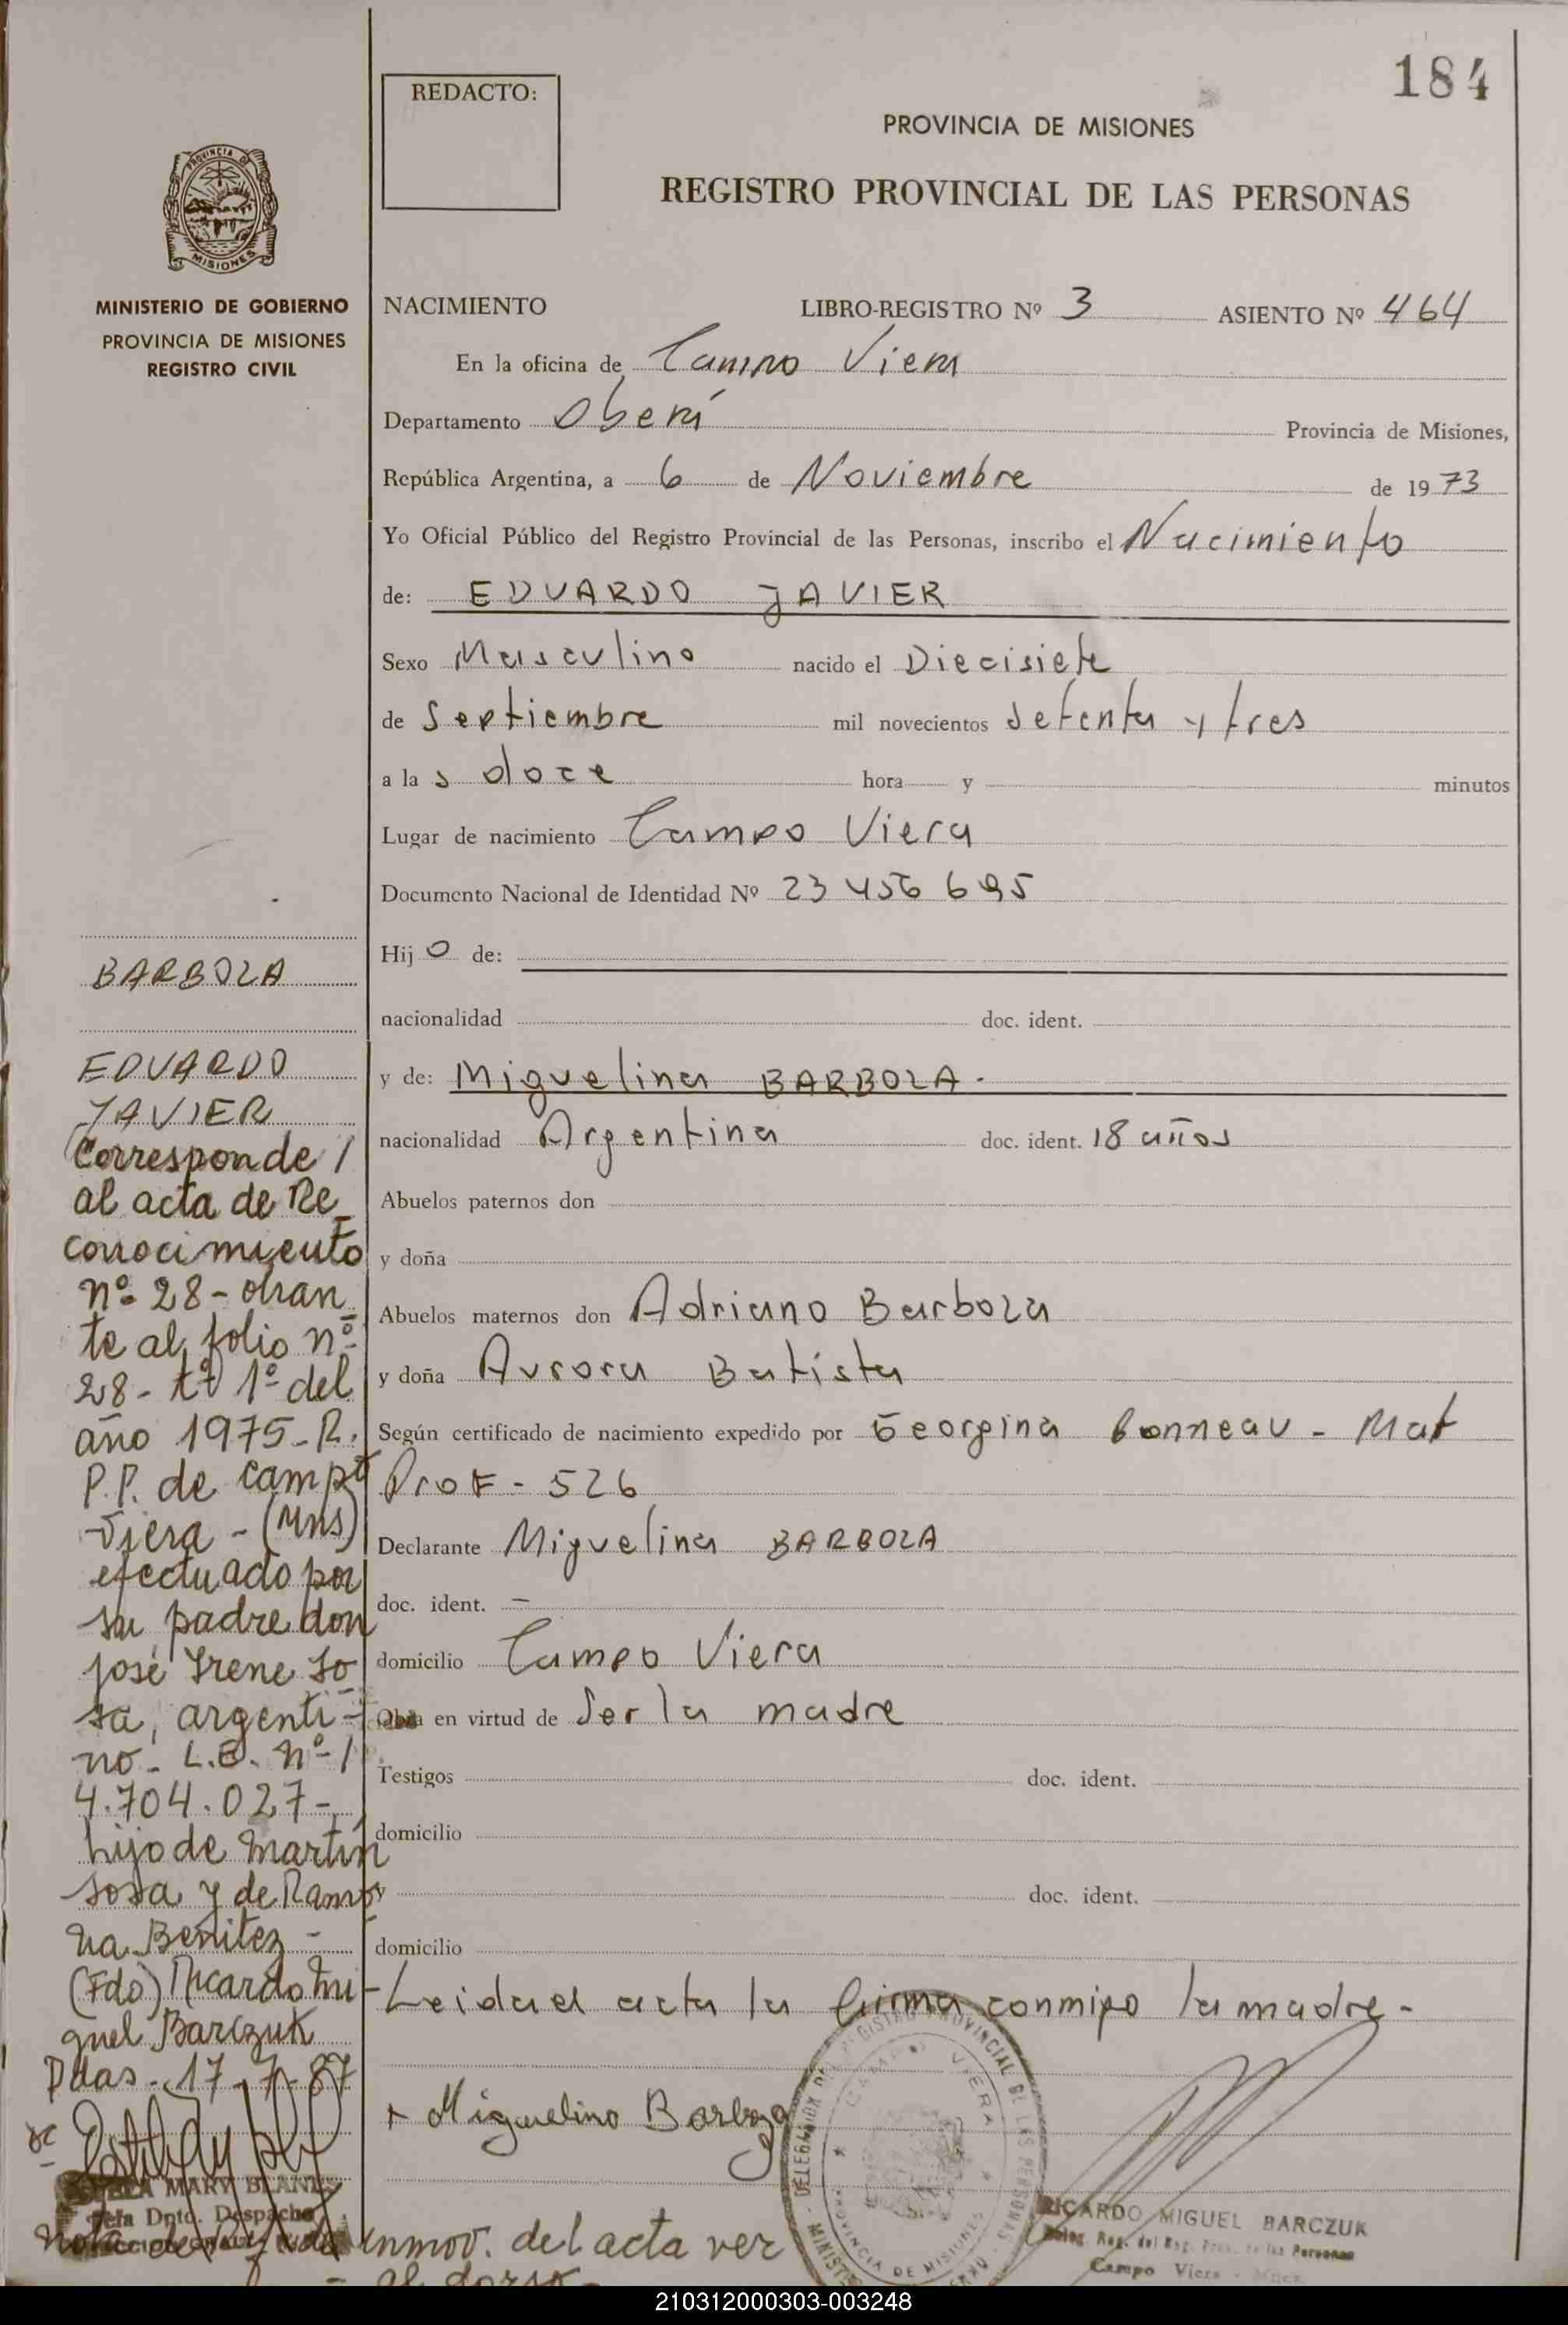 184
REDACTO:
PROVINCIA DE MISIONES
REGISTRO PROVINCIAL DE LAS PERSONAS
PROVINCIA DE
MISIONES
MINISTERIO DE GOBIERNO
PROVINCIA DE MISIONES
REGISTRO CIVIL
NACIMIENTO LIBRO-REGISTRO Nº 3 ASIENTO Nº 464
En la oficina de Campo Viera
Departamento Oberá Provincia de Misiones,
República Argentina, a 6 de Noviembre de 1973
Yo Oficial Público del Registro Provincial de las Personas, inscribo el Nacimiento
de: EDUARDO JAVIER
Sexo Masculino nacido el Diecisiete
de Septiembre mil novecientos setenta y tres
a la s doce hora y minutos
Lugar de nacimiento Campo Viera
Documento Nacional de Identidad Nº 23 456 695
Hij o de:
nacionalidad doc. ident.
y de: Miguelina BARBOZA.
nacionalidad Argentina doc. ident. 18 años
Abuelos paternos don
y doña
Abuelos maternos don Adriano Barboza
y doña Aurora Batista
Según certificado de nacimiento expedido por Georgina Bonneau - Mat
Prof - 526
Declarante Miguelina BARBOZA
doc. ident. -
domicilio Campo Viera
Obra en virtud de Ser la madre
Testigos doc. ident.
domicilio
doc. ident.
domicilio
Leida el acta la firma conmigo la madre -
+ Miguelina Barboza
RICARDO MIGUEL BARCZUK
Deleg. Reg. del Reg. Prov. de las Personas
Campo Viera - Mnes.
BARBOZA
EDUARDO
JAVIER
Corresponde /
al acta de Re
conocimiento
nº 28 - obran
te al folio nº
28 - tº 1º del
año 1975 - R.
P.P. de Campo
Viera - (Mns)
efectuado por
su padre don
José Irene So
sa, argenti-
no - L.E. nº /
4.704.027 -
hijo de Martín
Sosa y de Ramo
na Benitez -
(Fdo) Ricardo Mi-
guel Barczuk
Pdas - 17 - 7 - 87
MARY BLANES
Jefa Dpto. Despacho
Nota de inmov. del acta ver
- al dorso -
210312000303-003248